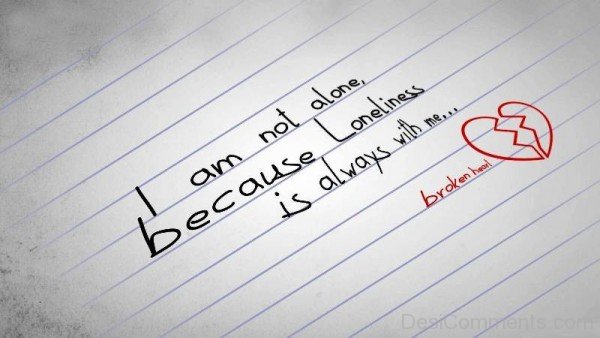 I am not alone,
because Loneliness
is always with me...
broken heart
DesiComments.com